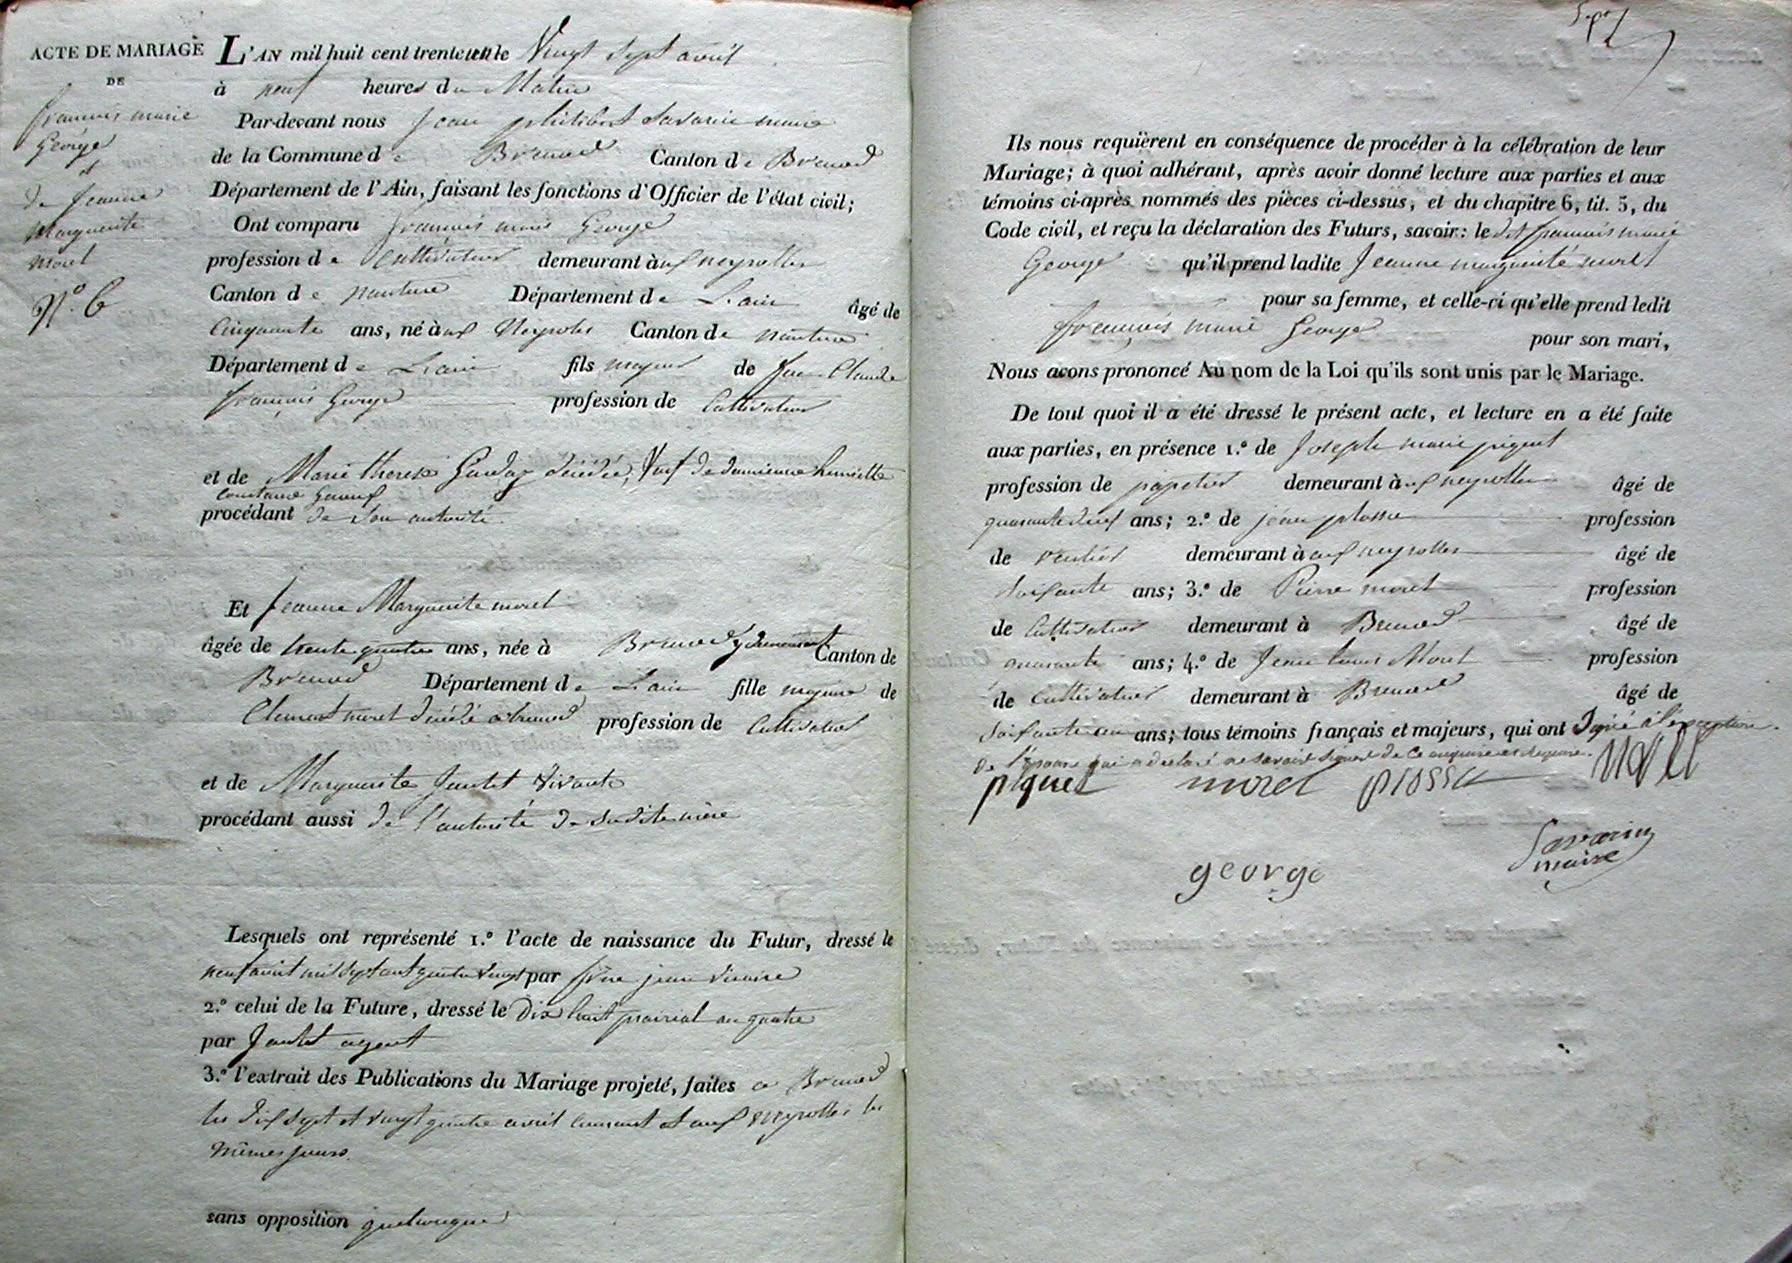 ACTE DE MARIAGE
DE
françois marie
George
et
de jeanne
Marguerite
moret
N.º 6
L'AN mil huit cent trente un le Vingt sept avril
à neuf heures du Matin
Par-devant nous Jean philibert Savarin maire
de la Commune de Brenod Canton de Brenod
Département de l'Ain, faisant les fonctions d'Officier de l'état civil;
Ont comparu françois marie George
profession de Cultivateur demeurant à aux neyrolles
Canton de nantua Département de L'ain âgé de
Cinquante ans, né à aux Neyroles Canton de nantua
Département de L'ain fils majeur de Jean Claude
françois George profession de Cultivateur
et de Marie therese Goudaz décédée, Veuf de damienne henriette
constance
procédant de Son autorité
Et jeanne Marguerite moret
âgée de trente quatre ans, née à Brenod y demeurant Canton de
Brenod Département de L'ain fille majeure de
Clement moret décédé a brenod profession de Cultivateur
et de Marguerite Jantet Vivante
procédant aussi de l'autorité de Sadite mère
Lesquels ont représenté 1.º l'acte de naissance du Futur, dressé le
neuf avril mil sept cent quatre vingt par jean vicaire
2.º celui de la Future, dressé le Dix huit prairial an quatre
par Jantet agent
3.º l'extrait des Publications du Mariage projeté, faites a Brenod
les dix sept et vingt quatre avril courant et aux neyrolles les
mêmes jours.
sans opposition quelconque
Sept
Ils nous requièrent en conséquence de procéder à la célébration de leur
Mariage; à quoi adhérant, après avoir donné lecture aux parties et aux
témoins ci-après nommés des pièces ci-dessus, et du chapitre 6, tit. 5, du
Code civil, et reçu la déclaration des Futurs, savoir: le dit françois marie
George qu'il prend ladite Jeanne marguerite moret
pour sa femme, et celle-ci qu'elle prend ledit
françois marie George pour son mari,
Nous avons prononcé Au nom de la Loi qu'ils sont unis par le Mariage.
De tout quoi il a été dressé le présent acte, et lecture en a été faite
aux parties, en présence 1.º de Joseph marie piquet
profession de papetier demeurant à aux neyrolles âgé de
quarante neuf ans; 2.º de jean plasse profession
de rentier demeurant à aux neyrolles âgé de
Soixante ans; 3.º de Pierre moret profession
de Cultivateur demeurant à Brenod âgé de
quarante ans; 4.º de Jean louis Moret profession
de Cultivateur demeurant à Brenod âgé de
Soixante un ans; tous témoins français et majeurs, qui ont Signé à l'exception
de l'épouse qui a déclaré ne savoir signer de ce enquise et requise.
piquet moret plasse
george
Savarin
maire